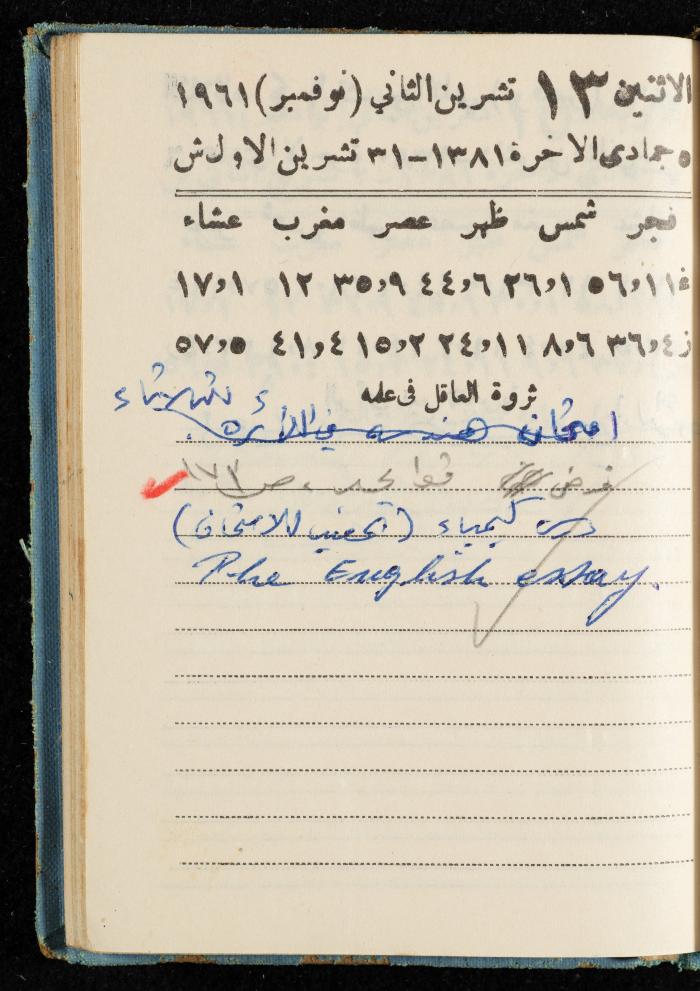 الاثنين ١٣ تشرين الثاني (نوفمبر) ١٩٦١
٥ جمادى الاخرة ١٣٨١ – ٣١ تشرين الاول ش
فجر شمس ظهر عصر مغرب عشاء
غ ١١٫٥٦ ١٫٢٦ ٦٫٤٤ ٩٫٣٥ ١٢ ١٫١٧
ز ٤٫٣٦ ٦٫٨ ١١٫٢٤ ٢٫١٥ ٤٫٤١ ٥٫٥٧
ثروة العاقل في علمه
امتحان هندسة في الدائرة
فرض ص ١٧٣
درس كيمياء (تحضير للامتحان)
The English essay.